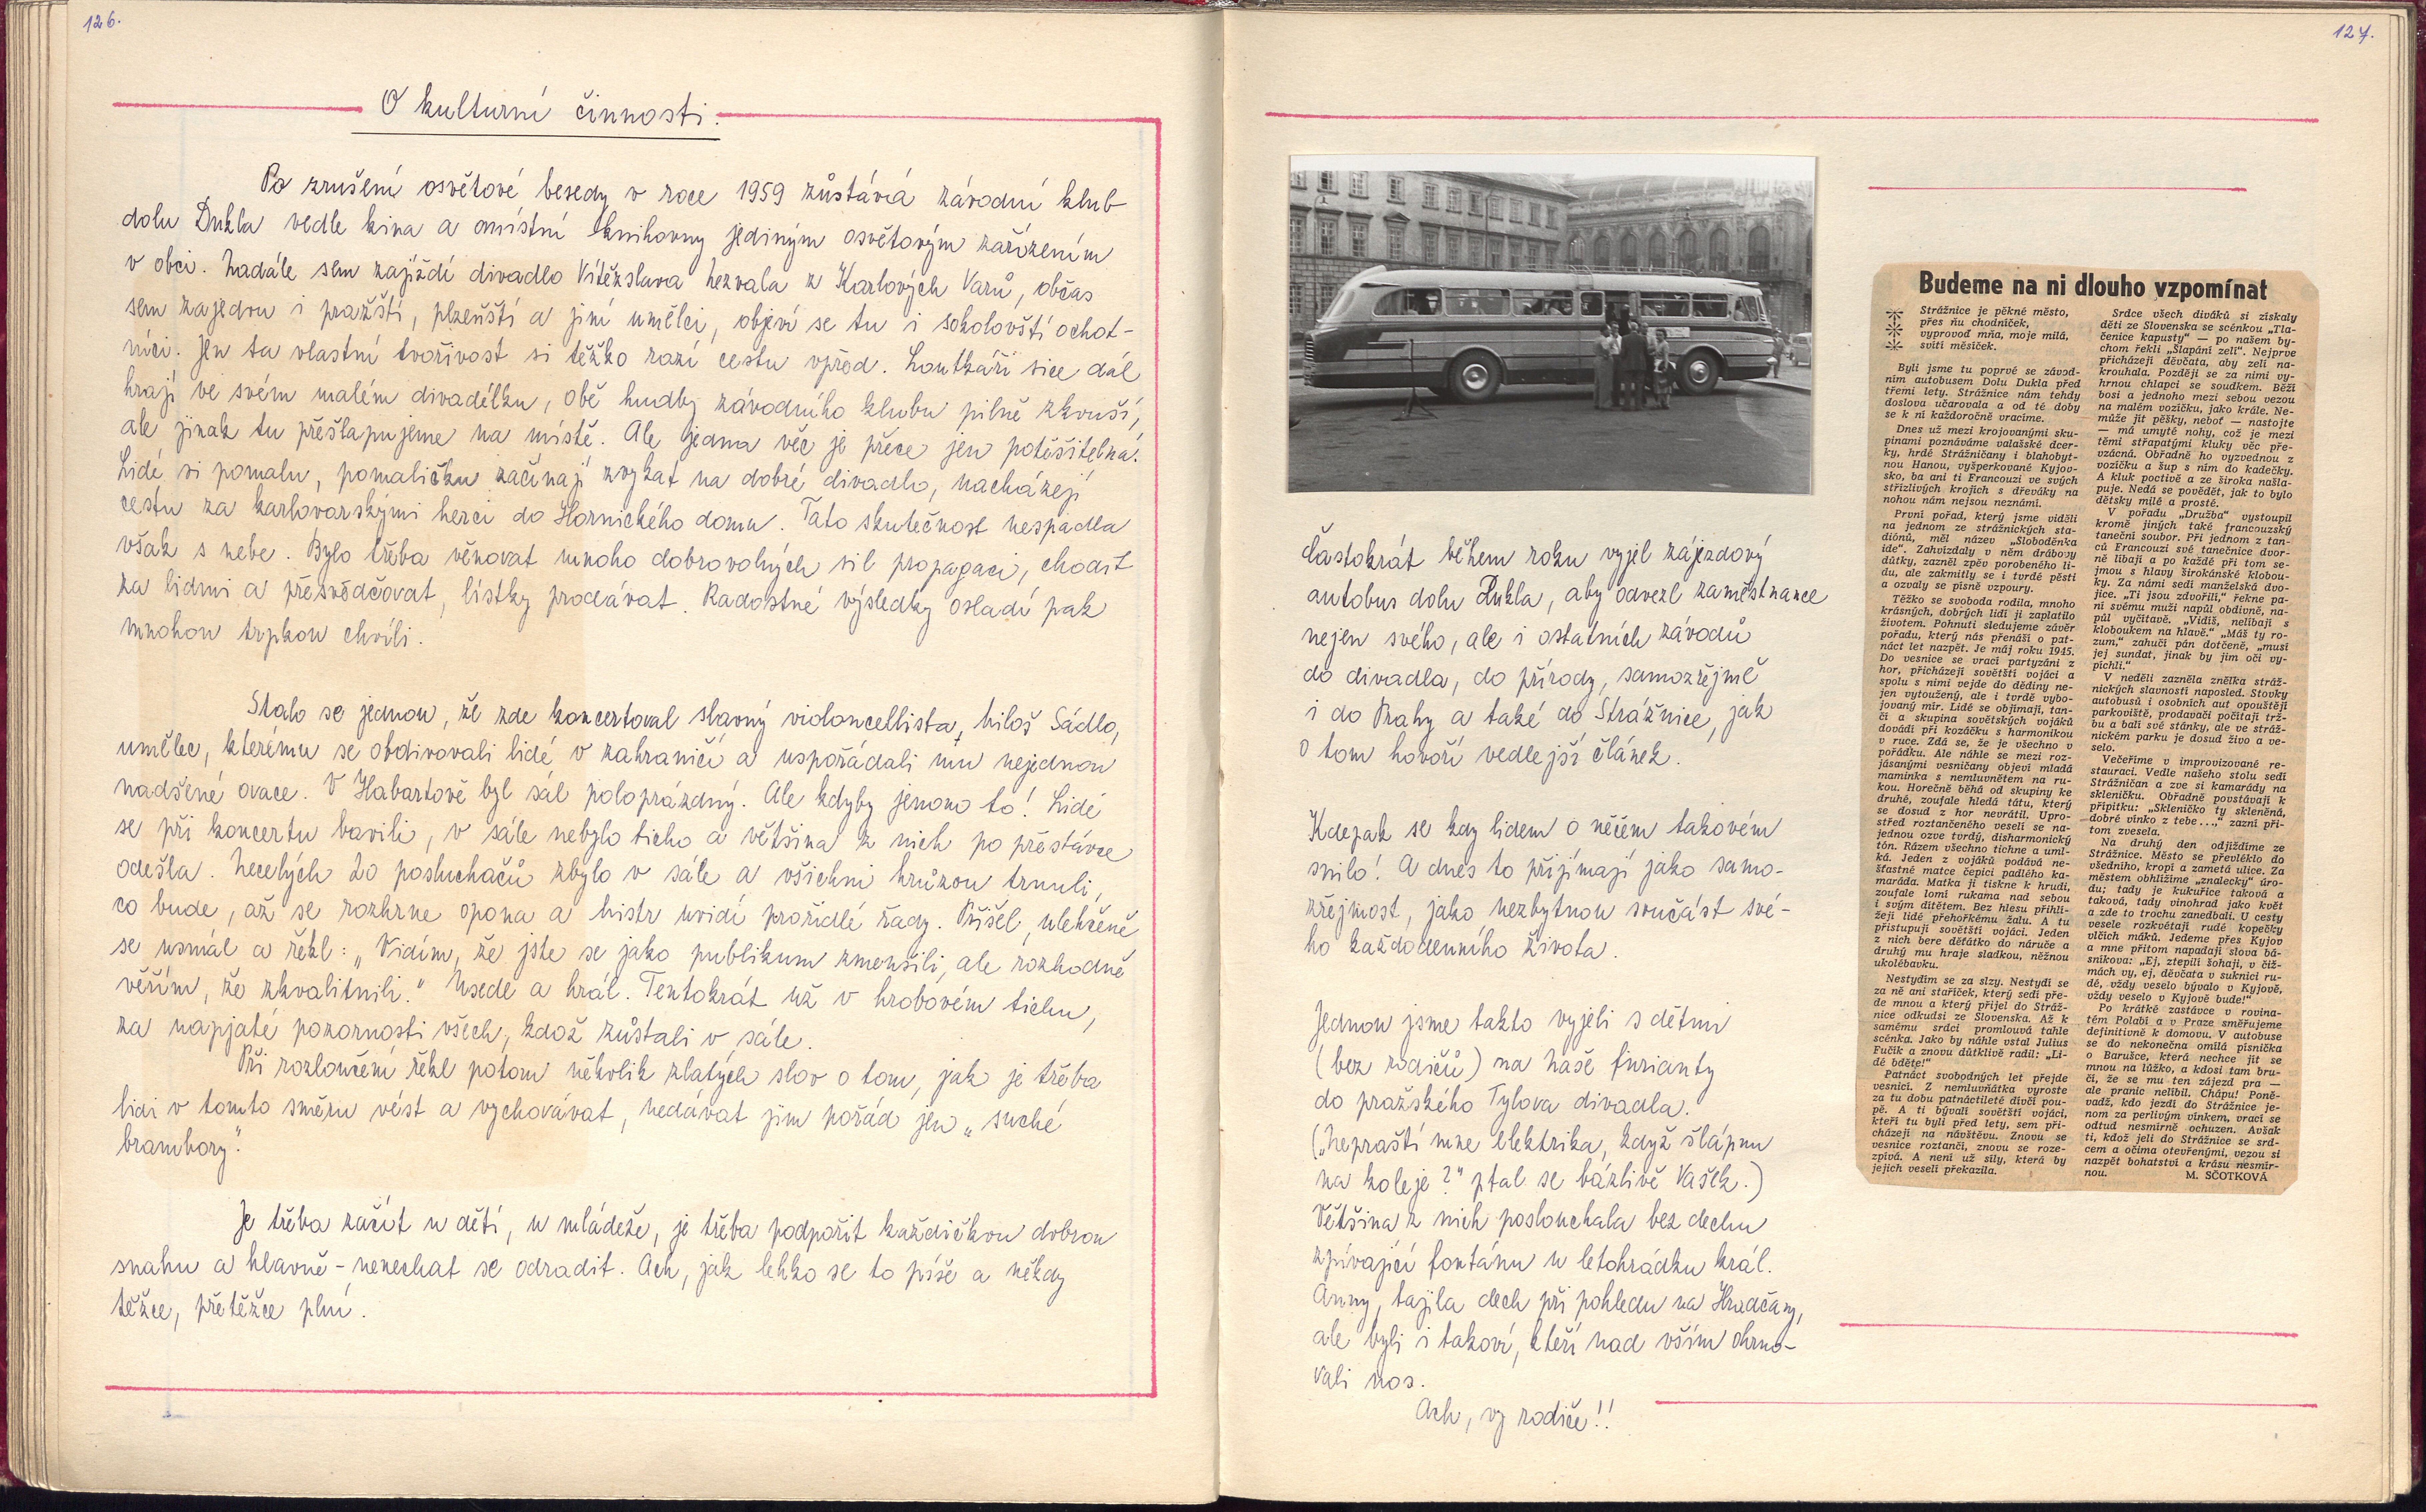 126.
O kulturní činnosti.
Po zrušení osvětové besedy v roce 1959 zůstává závodní klub
dolu Dukla vedle kina a místní knihovny jediným osvětovým zařízením
v obci. Nadále sem zajíždí divadlo Vítězslava Nezvala z Karlových Varů, občas
sem zajedou i pražští, plzeňští a jiní umělci, objeví se tu i sokolovští ochot-
níci. Jen ta vlastní tvořivost si těžko razí cestu vpřed. Loutkáři sice dál
hrají ve svém malém divadélku, obě hudby závodního klubu pilně zkouší,
ale jinak tu přešlapujeme na místě. Ale jedna věc je přece jen potěšitelná:
Lidé si pomalu, pomaličku začínají zvykat na dobré divadlo, nacházejí
cestu za karlovarskými herci do Hornického domu. Tato skutečnost nespadla
však s nebe. Bylo třeba věnovat mnoho dobrovolných sil propagaci, chodit
za lidmi a přesvědčovat, lístky prodávat. Radostné výsledky osladí pak
mnohou trpkou chvíli.
Stalo se jednou, že zde koncertoval slavný violoncellista, Miloš Sádlo,
umělec, kterému se obdivovali lidé v zahraničí a uspořádali mu nejednou
nadšené ovace. V Habartově byl sál poloprázdný. Ale kdyby jenono to! Lidé
se při koncertu bavili, v sále nebylo ticho a většina z nich po přestávce
odešla. Necelých 20 posluchačů zbylo v sále a všichni hrůzou trnuli,
co bude, až se rozhrne opona a mistr uvidí prořídlé řady. Přišel, ulehčeně
se usmál a řekl: „Vidím, že jste se jako publikum zmenšili, ale rozhodně
věřím, že zkvalitnili.“ Usedl a hrál. Tentokrát už v hrobovém tichu,
za napjaté pozornosti všech, kdož zůstali v sále.
Při rozloučení řekl potom několik zlatých slov o tom, jak je třeba
lidi v tomto směru vést a vychovávat, nedávat jim pořád jen „suché
brambory“.
Je třeba začít u dětí, u mládeže, je třeba podpořit každičkou dobrou
snahu a hlavně - nenechat se odradit. Ach, jak lehko se to píše a někdy
těžce, přetěžce plní.
127.
Častokrát během roku vyjel zájezdový
autobus dolu Dukla, aby odvezl zaměstnance
nejen svého, ale i ostatních závodů
do divadla, do přírody, samozřejmě
i do Prahy a také do Strážnice, jak
o tom hovoří vedlejší článek.
Kdepak se kdy lidem o něčem takovém
snilo! A dnes to přijímají jako samo-
zřejmost, jako nezbytnou součást své-
ho každodenního života.
Jednou jsme takto vyjeli s dětmi
(bez rodičů) na Naše furianty
do pražského Tylova divadla.
(„Nepraští mne elektrika, když šlápnu
na koleje?“ ptal se bázlivě Vašek.)
Většina z nich poslouchala bez dechu
zpívající fontánu u letohrádku král.
Anny, tajila dech při pohledu na Hradčany,
ale byli i takoví, kteří nad vším ohrno-
vali nos.
Ach, vy rodiče!!
Budeme na ni dlouho vzpomínat
Strážnice je pěkné město,
přes ňu chodníček,
vyprovoď mňa, moje milá,
svítí měsíček.
Byli jsme tu poprvé se závod-
ním autobusem Dolu Dukla před
třemi lety. Strážnice nám tehdy
doslova učarovala a od té doby
se k ní každoročně vracíme.
Dnes už mezi krojovanými sku-
pinami poznáváme valašské dcer-
ky, hrdé Strážničany i blahobyt-
nou Hanou, vyšperkované Kyjov-
sko, ba ani ti Francouzi ve svých
střízlivých krojích s dřeváky na
nohou nám nejsou neznámí.
První pořad, který jsme viděli
na jednom ze strážnických sta-
diónů, měl název „Slobodёnka
ide“. Zahvízdaly v něm drábovy
důtky, zazněl zpěv porobeného li-
du, ale zakmitly se i tvrdé pěsti
a ozvaly se písně vzpoury.
Těžko se svoboda rodila, mnoho
krásných, dobrých lidí ji zaplatilo
životem. Pohnuti sledujeme závěr
pořadu, který nás přenáší o pat-
náct let nazpět. Je máj roku 1945.
Do vesnice se vrací partyzáni z
hor, přicházejí sovětští vojáci a
spolu s nimi vejde do dědiny ne-
jen vytoužený, ale i tvrdě vybo-
jovaný mír. Lidé se objímají, tan-
čí a skupina sovětských vojáků
dovádí při kozáčku s harmonikou
v ruce. Zdá se, že je všechno v
pořádku. Ale náhle se mezi roz-
jásanými vesničany objeví mladá
maminka s nemluvnětem na ru-
kou. Horečně běhá od skupiny ke
druhé, zoufale hledá tátu, který
se dosud z hor nevrátil. Upro-
střed roztančeného veselí se na-
jednou ozve tvrdý, disharmonický
tón. Rázem všechno tichne a uml-
ká. Jeden z vojáků podává ne-
šťastné matce čepici padlého ka-
maráda. Matka ji tiskne k hrudi,
zoufale lomí rukama nad sebou
i svým dítětem. Bez hlesu přihlí-
žejí lidé přehořkému žalu. A tu
přistupují sovětští vojáci. Jeden
z nich bere děťátko do náruče a
druhý mu hraje sladkou, něžnou
ukolébavku.
Nestydím se za slzy. Nestydí se
za ně ani staříček, který sedí pře-
de mnou a který přijel do Stráž-
nice odkudsi ze Slovenska. Až k
samému srdci promlouvá tahle
scénka. Jako by náhle vstal Julius
Fučík a znovu důtklivě radil: „Li-
dé bděte!“
Patnáct svobodných let přejde
vesnicí. Z nemluvňátka vyroste
za tu dobu patnáctileté dívčí pou-
pě. A ti bývalí sovětští vojáci,
kteří tu byli před lety, sem při-
cházejí na návštěvu. Znovu se
vesnice roztančí, znovu se roze-
zpívá. A není už síly, která by
jejich veselí překazila.
Srdce všech diváků si získaly
děti ze Slovenska se scénkou „Tla-
čenice kapusty“ — po našem by-
chom řekli „Šlapání zelí“. Nejprve
přicházejí děvčata, aby zelí na-
krouhala. Později se za nimi vy-
hrnou chlapci se soudkem. Běží
bosi a jednoho mezi sebou vezou
na malém vozíčku, jako krále. Ne-
může jít pěšky, neboť — nastojte
— má umyté nohy, což je mezi
těmi střapatými kluky věc pře-
vzácná. Obřadně ho vyzvednou z
vozíčku a šup s ním do kadečky.
A kluk poctivě a ze široka našla-
puje. Nedá se povědět, jak to bylo
dětsky milé a prosté.
V pořadu „Družba“ vystoupil
kromě jiných také francouzský
taneční soubor. Při jednom z tan-
ců Francouzi své tanečnice dvor-
ně líbají a po každé při tom se-
jmou s hlavy širokánské klobou-
ky. Za námi sedí manželská dvo-
jice. „Ti jsou zdvořilí,“ řekne pa-
ní svému muži napůl obdivně, na-
půl vyčítavě. „Vidíš, nelíbají s
kloboukem na hlavě.“ „Máš ty ro-
zum,“ zahučí pán dotčeně, „musí
jej sundat, jinak by jim oči vy-
píchli.“
V neděli zazněla znělka stráž-
nických slavností naposled. Stovky
autobusů i osobních aut opouštějí
parkoviště, prodavači počítají trž-
bu a balí své stánky, ale ve stráž-
nickém parku je dosud živo a ve-
selo.
Večeříme v improvizované re-
stauraci. Vedle našeho stolu sedí
Strážničan a zve si kamarády na
skleničku. Obřadně povstávají k
přípitku: „Skleničko ty skleněná,
dobré vínko z tebe...,“ zazní při-
tom zvesela.
Na druhý den odjíždíme ze
Strážnice. Město se převléklo do
všedního, kropí a zametá ulice. Za
městem obhlížíme „znalecky“ úro-
du; tady je kukuřice taková a
taková, tady vinohrad jako květ
a zde to trochu zanedbali. U cesty
vesele rozkvétají rudé kopečky
vlčích máků. Jedeme přes Kyjov
a mne přitom napadají slova bá-
sníkova: „Ej, ztepilí šohaji, v čiž-
mách vy, ej, děvčata v suknici ru-
dé, vždy veselo bývalo v Kyjově,
vždy veselo v Kyjově bude!“
Po krátké zastávce v rovina-
tém Polabí a v Praze směřujeme
definitivně k domovu. V autobuse
se do nekonečna omílá písnička
o Barušce, která nechce jít se
mnou na lůžko, a kdosi tam bru-
čí, že se mu ten zájezd pra —
ale pranic nelíbil. Chápu! Poně-
vadž, kdo jezdí do Strážnice je-
nom za perlivým vínkem, vrací se
odtud nesmírně ochuzen. Avšak
ti, kdož jeli do Strážnice se srd-
cem a očima otevřenými, vezou si
nazpět bohatství a krásu nesmír-
nou.
M. SČOTKOVÁ